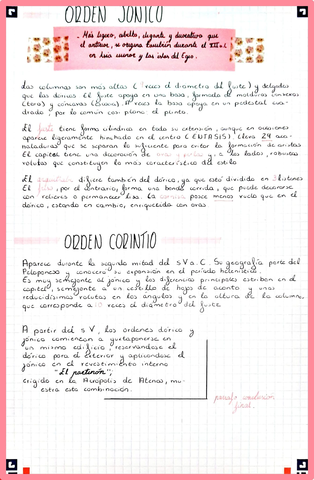 ORDEN JÓNICO
- Más ligero, abello, elegante y decorativo que
el anterior, se origina también durante el
en Asia menor y las islas del Egeo.
Las columnas son más altas ( veces el diámetro del fuste) y delgadas
que las dóricas. El fuste apoya en una basa, formada de molduras convexas
(toro) y cóncavas (escocia). A veces la basa apoya en un pedestal cua-
drado, por lo común con plano el plinto.
El fuste tiene forma cilíndrica en toda su extensión, aunque en ocasiones
aparece ligeramente hinchado en el centro (ÉNTASIS). Lleva 24 aca-
naladuras que se separan lo suficiente para evitar la formación de aristas
El capitel tiene una decoración de y, a los lados, robustas
volutas que constituyen lo más característico del estilo
El difiere también del dórico, ya que está dividido en 3 listones
El friso, por el contrario, forma una banda corrida, que puede decorarse
con relieves o permanecer lisa. La cornisa posee menos vuelo que en el
dórico, estando en cambio, enriquecida con ovas
ORDEN CORINTIO
Aparece durante la segunda mitad del s V a.C. Su geografía parte del
Peloponeso y conocerá su expansión en el período helenístico.
Es muy semejante al jónico y las diferencias principales estriban en el
capitel, semejante a un cestillo de hojas de acanto y unas
reducidísimas volutas en los ángulos y en la altura de la columna,
que corresponde a 10 veces el diámetro del fuste
A partir del s V, los órdenes dórico y
jónico comienzan a yuxtaponerse en
un mismo edificio, reservándose el
dórico para el exterior y aplicándose el
jónico en el revestimiento interno
"El partenón",
erigido en la Acrópolis de Atenas, mu-
estra esta combinación.
párrafo conclusión
final.